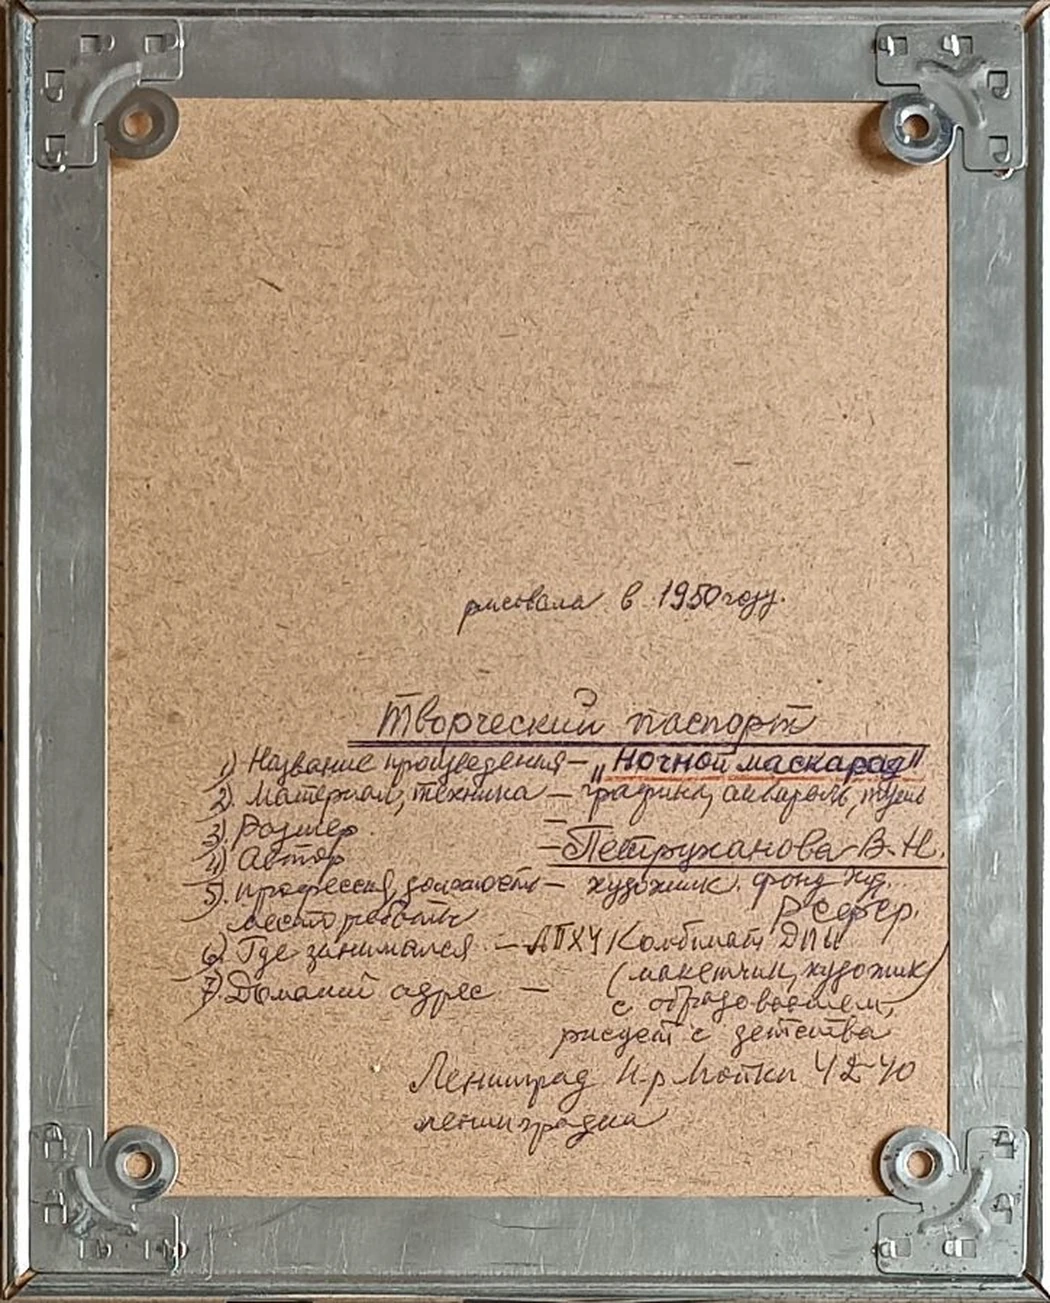 рисовала в 1950 году.
Творческий паспорт
1) Название произведения — „Ночной маскарад"
2). Материал, техника — графика, акварель, тушь
3). Размер —
4) Автор — Петруханова В. Н.
5). профессия, должность — художник. фонд худ.
место работы РСФСР.
6). Где занимался — ЛПХУ Комбинат ДПИ
(макетчик, художник)
7). Домаший адрес —
с образованием,
рисует с детства
Ленинград Н-р Мойки 42-40
ленинградка